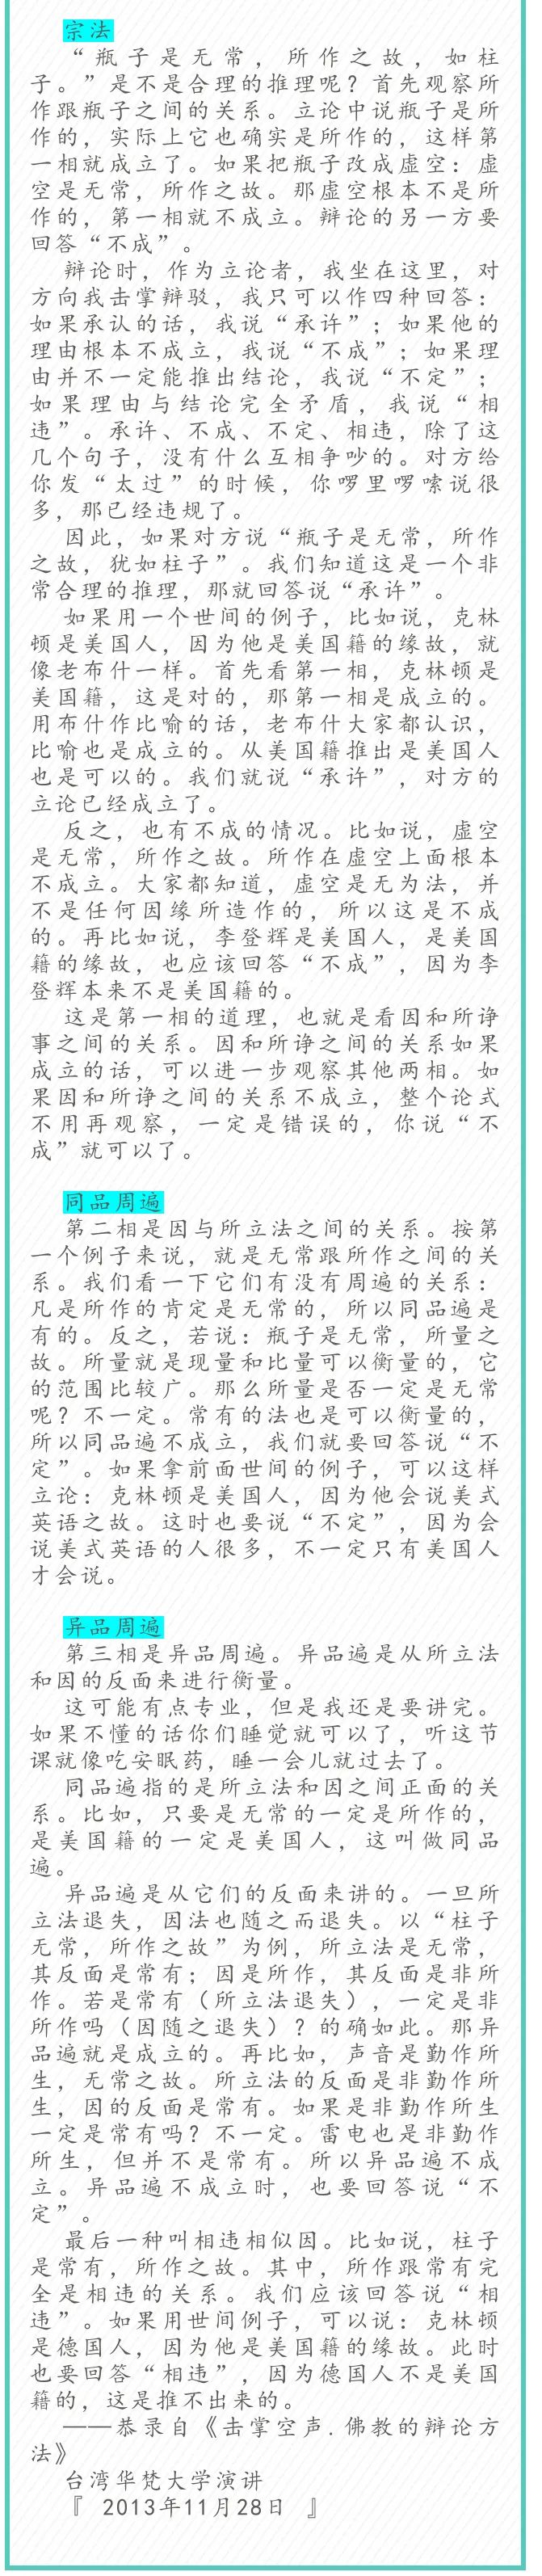 宗法
“瓶子是无常，所作之故，如柱
子。”是不是合理的推理呢？首先观察所
作跟瓶子之间的关系。立论中说瓶子是所
作的，实际上它也确实是所作的，这样第
一相就成立了。如果把瓶子改成虚空：虚
空是无常，所作之故。那虚空根本不是所
作的，第一相就不成立。辩论的另一方要
回答“不成”。
辩论时，作为立论者，我坐在这里，对
方向我击掌辩驳，我只可以作四种回答：
如果承认的话，我说“承许”；如果他的
理由根本不成立，我说“不成”；如果理
由并不一定能推出结论，我说“不定”；
如果理由与结论完全矛盾，我说“相
违”。承许、不成、不定、相违，除了这
几个句子，没有什么互相争吵的。对方给
你发“太过”的时候，你啰里啰嗦说很
多，那已经违规了。
因此，如果对方说“瓶子是无常，所作
之故，犹如柱子”。我们知道这是一个非
常合理的推理，那就回答说“承许”。
如果用一个世间的例子，比如说，克林
顿是美国人，因为他是美国籍的缘故，就
像老布什一样。首先看第一相，克林顿是
美国籍，这是对的，那第一相是成立的。
用布什作比喻的话，老布什大家都认识，
比喻也是成立的。从美国籍推出是美国人
也是可以的。我们就说“承许”，对方的
立论已经成立了。
反之，也有不成的情况。比如说，虚空
是无常，所作之故。所作在虚空上面根本
不成立。大家都知道，虚空是无为法，并
不是任何因缘所造作的，所以这是不成
的。再比如说，李登辉是美国人，是美国
籍的缘故，也应该回答“不成”，因为李
登辉本来不是美国籍的。
这是第一相的道理，也就是看因和所诤
事之间的关系。因和所诤之间的关系如果
成立的话，可以进一步观察其他两相。如
果因和所诤之间的关系不成立，整个论式
不用再观察，一定是错误的，你说“不
成”就可以了。
同品周遍
第二相是因与所立法之间的关系。按第
一个例子来说，就是无常跟所作之间的关
系。我们看一下它们有没有周遍的关系：
凡是所作的肯定是无常的，所以同品遍是
有的。反之，若说：瓶子是无常，所量之
故。所量就是现量和比量可以衡量的，它
的范围比较广。那么所量是否一定是无常
呢？不一定。常有的法也是可以衡量的，
所以同品遍不成立，我们就要回答说“不
定”。如果拿前面世间的例子，可以这样
立论：克林顿是美国人，因为他会说美式
英语之故。这时也要说“不定”，因为会
说美式英语的人很多，不一定只有美国人
才会说。
异品周遍
第三相是异品周遍。异品遍是从所立法
和因的反面来进行衡量。
这可能有点专业，但是我还是要讲完。
如果不懂的话你们睡觉就可以了，听这节
课就像吃安眠药，睡一会儿就过去了。
同品遍指的是所立法和因之间正面的关
系。比如，只要是无常的一定是所作的，
是美国籍的一定是美国人，这叫做同品
遍。
异品遍是从它们的反面来讲的。一旦所
立法退失，因法也随之而退失。以“柱子
无常，所作之故”为例，所立法是无常，
其反面是常有；因是所作，其反面是非所
作。若是常有（所立法退失），一定是非
所作吗（因随之退失）？的确如此。那异
品遍就是成立的。再比如，声音是勤作所
生，无常之故。所立法的反面是非勤作所
生，因的反面是常有。如果是非勤作所生
一定是常有吗？不一定。雷电也是非勤作
所生，但并不是常有。所以异品遍不成
立。异品遍不成立时，也要回答说“不
定”。
最后一种叫相违相似因。比如说，柱子
是常有，所作之故。其中，所作跟常有完
全是相违的关系。我们应该回答说“相
违”。如果用世间例子，可以说：克林顿
是德国人，因为他是美国籍的缘故。此时
也要回答“相违”，因为德国人不是美国
籍的，这是推不出来的。
——恭录自《击掌空声.佛教的辩论方
法》
台湾华梵大学演讲
『 2013年11月28日 』